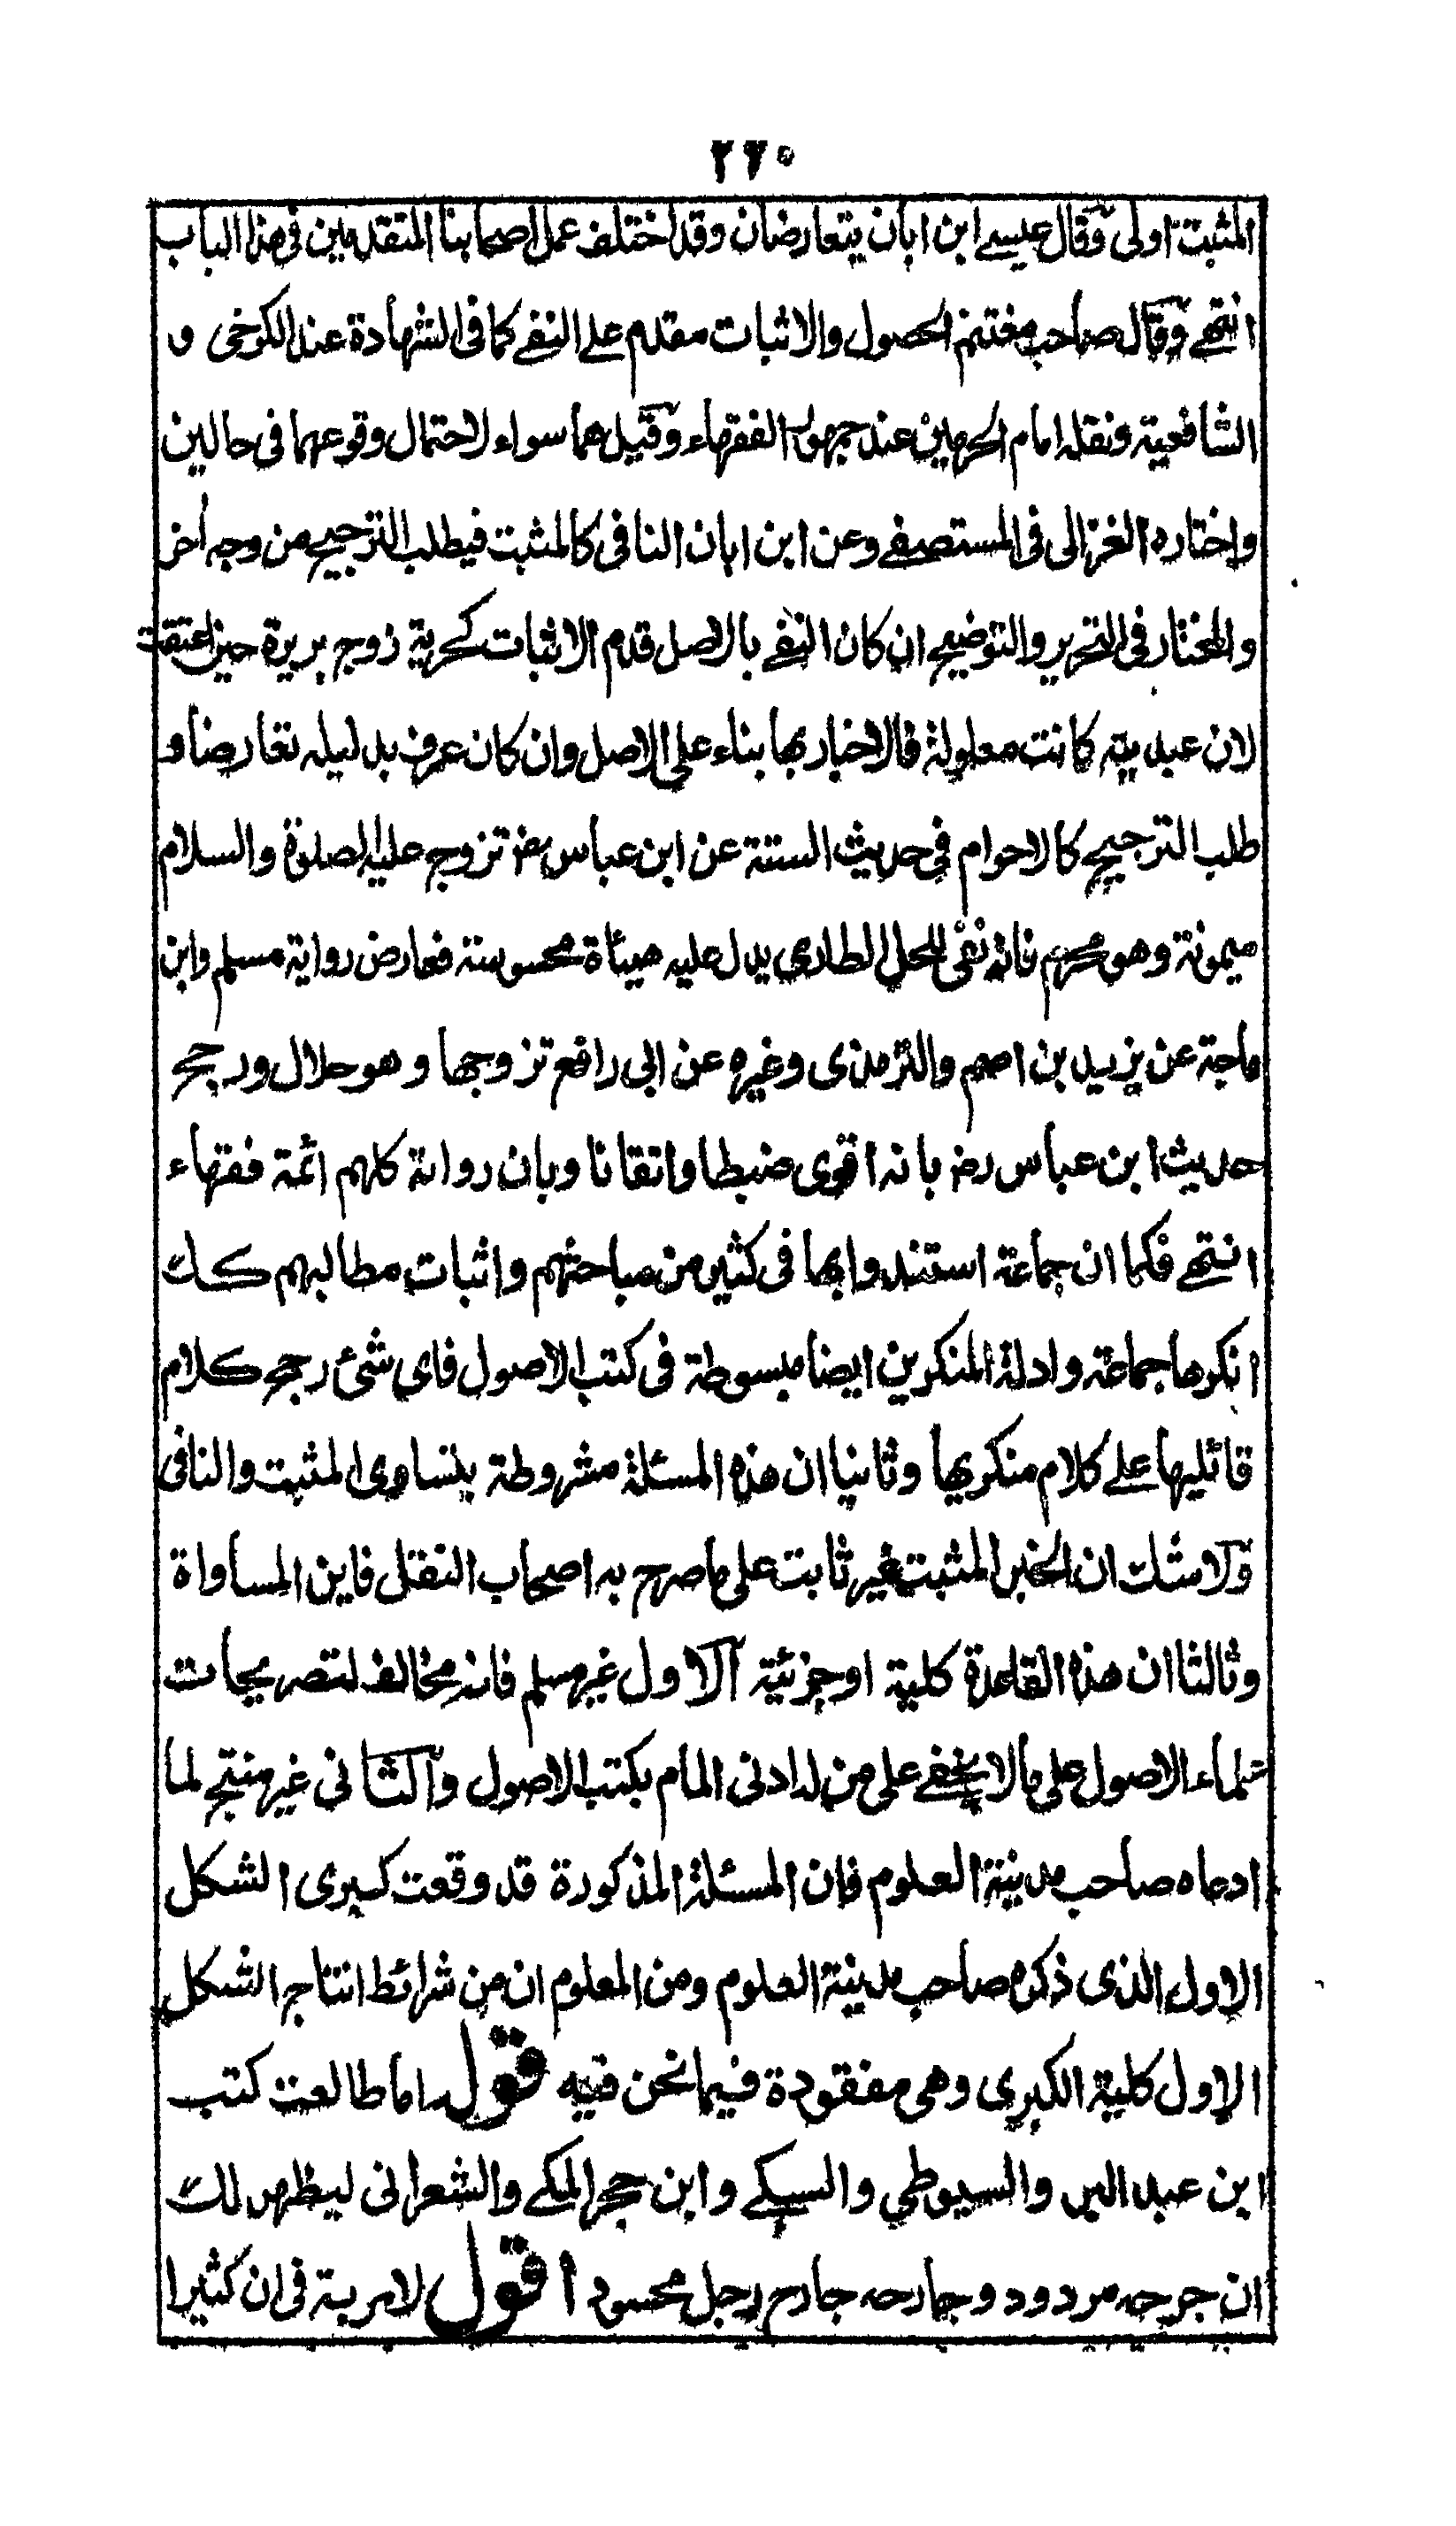 ٢٦٥
المثبت اولى وقال عيسے ابن ابان يتعارضان وقد اختلف عمل اصحابنا المتقدمين فى هذا الباب
انتهے وقال صاحب مغتنم الحصول والاثبات مقدم علے النفے كما فى الشهادة عند الكرخى و
الشافعية ونقله امام الحرمين عند جمهور الفقهاء وقيل هما سواء لاحتمال وقوعهما فى حالين
واختاره الغزالى فى المستصفے وعن ابن ابان النافى كالمثبت فيطلب الترجيح من وجه اٰخر
والمختار فى التحرير والتوضيح ان كان النفے بالاصل قدم الاثبات كحرية زوج بريرة حين اعتقت
لان عبديته كانت معلولة فالاخبار بها بناء على الاصل وان كان عرف بدليله تعارضا و
طلب الترجيح كالاحرام فى حديث الستة عن ابن عباس رض تزوج عليه الصلوة والسلام
ميمونة وهو محرم فانه نفى للحل الطارى يدل عليه هيئاة محسوسة فعارض رواية مسلم وابن
ماجة عن يزيد بن اصم والترمذى وغيره عن ابى رافع تزوجها وهو حلال ورجح
حديث ابن عباس رض بانه اقوى ضبطا واتقانا وبان رواته كلهم ائمة فقهاء
انتهے فكما ان جماعة استندوا بها فى كثير من مباحثهم واثبات مطالبهم كك
انكرها جماعة وادلة المنكرين ايضا مبسوطة فى كتب الاصول فاي شئ رجح كلام
قائليها علے كلام منكريها وثانيا ان هذه المسئلة مشروطة بتساوى المثبت والنافى
ولا شك ان الخبر المثبت غير ثابت على ما صرح به اصحاب النقل فاين المساواة
وثالثا ان هذه القاعدة كلية او جزئية الاول غير مسلم فانه مخالف لتصريحات
علماء الاصول على ما لا يخفے على من له ادنى المام بكتب الاصول والثانى غير منتج لما
ادعاه صاحب مدينة العلوم فان المسئلة المذكورة قد وقعت كبرى الشكل
الاول الذى ذكره صاحب مدينة العلوم ومن المعلوم ان من شرائط انتاج الشكل
الاول كلية الكبرى وهى مفقودة فيما نحن فيه قوله اما طالعت كتب
ابن عبد البر والسيوطى والسبكے وابن حجر المكے والشعرانى ليظهر لك
ان جرحه مردود وجارحه جارح رجل محسود اقول لا مرية فى ان كثيرا